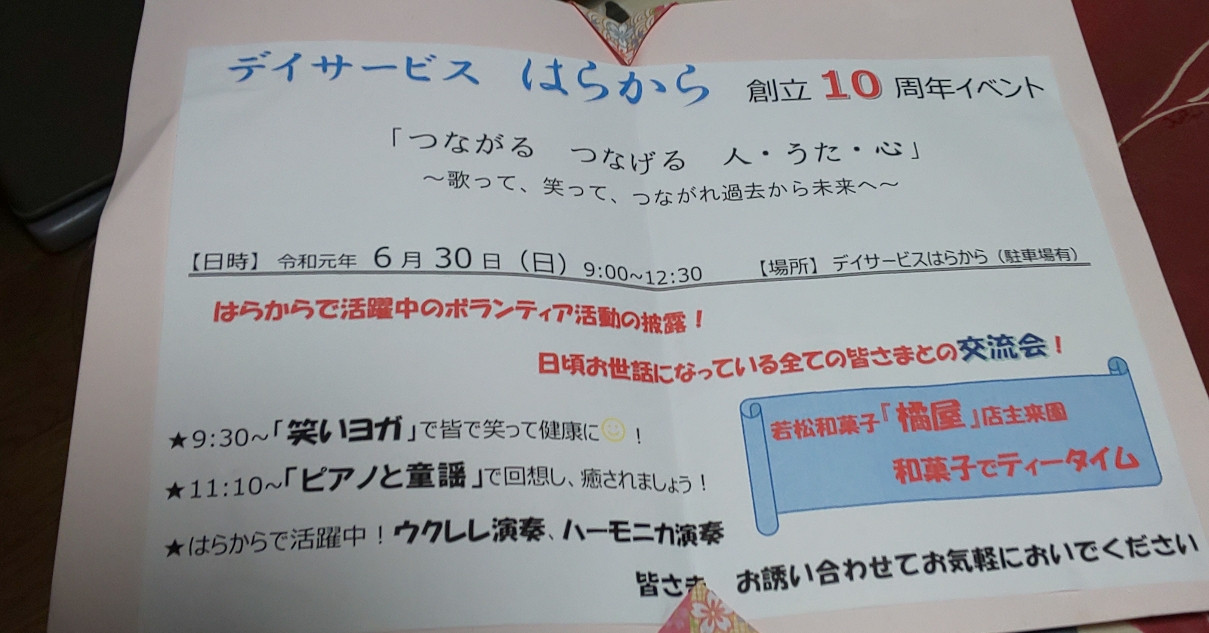 デイサービス はらから 創立 10 周年イベント
「つながる つなげる 人・うた・心」
～歌って、笑って、つながれ過去から未来へ～
【日時】 令和元年 6 月 30 日 (日) 9:00~12:30 【場所】 デイサービスはらから (駐車場有)
はらからで活躍中のボランティア活動の披露!
日頃お世話になっている全ての皆さまとの交流会!
★9:30~「笑いヨガ」で皆で笑って健康に!
★11:10~「ピアノと童謡」で回想し、癒されましょう!
★はらからで活躍中!ウクレレ演奏、ハーモニカ演奏
若松和菓子「橘屋」店主来園
和菓子でティータイム
皆さま お誘い合わせてお気軽においでください